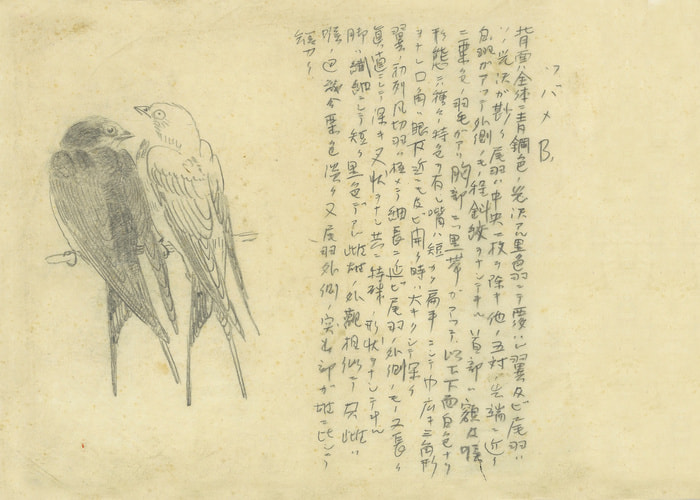 ツバメ B.
背面ハ全体ニ青鋼色ノ光沢アル黒色羽ニテ覆ハレ翼及ビ尾羽ハ
光沢ガ尠シ尾羽ハ中央一枚ヲ除キ他ノ五対ノ先端ニ近ク
白羽ガアツテ外側ノモノ程斜紋ヲナシテキル 首部ハ額及喉ニ
ニ栗色ノ羽毛ガアリ胸部ニハ黒帯ガアツテ 以下下面白色ナリ
形態ニ種々特色ヲ有シ嘴ハ短カク扁平ニシテ巾広キ三角形
ヲナシ口角ハ眼下近クニ及ビ開ク時ハ大キクシテ深ク
翼ノ初列風切羽ハ極メテ細長ニ延ビ尾羽ノ外側ノモノ又長ク
真直ニシテ深キ叉状ヲナシ共ニ特殊ノ形状ヲナシテキル
脚ハ繊細ニシテ短ク黒色デアル 此雌雄ノ外観相似テ只此ハ
喉ノ色彩今栗色淡ク又尾羽外側ノ突出部ガ雄ニ比シテ
短カシ